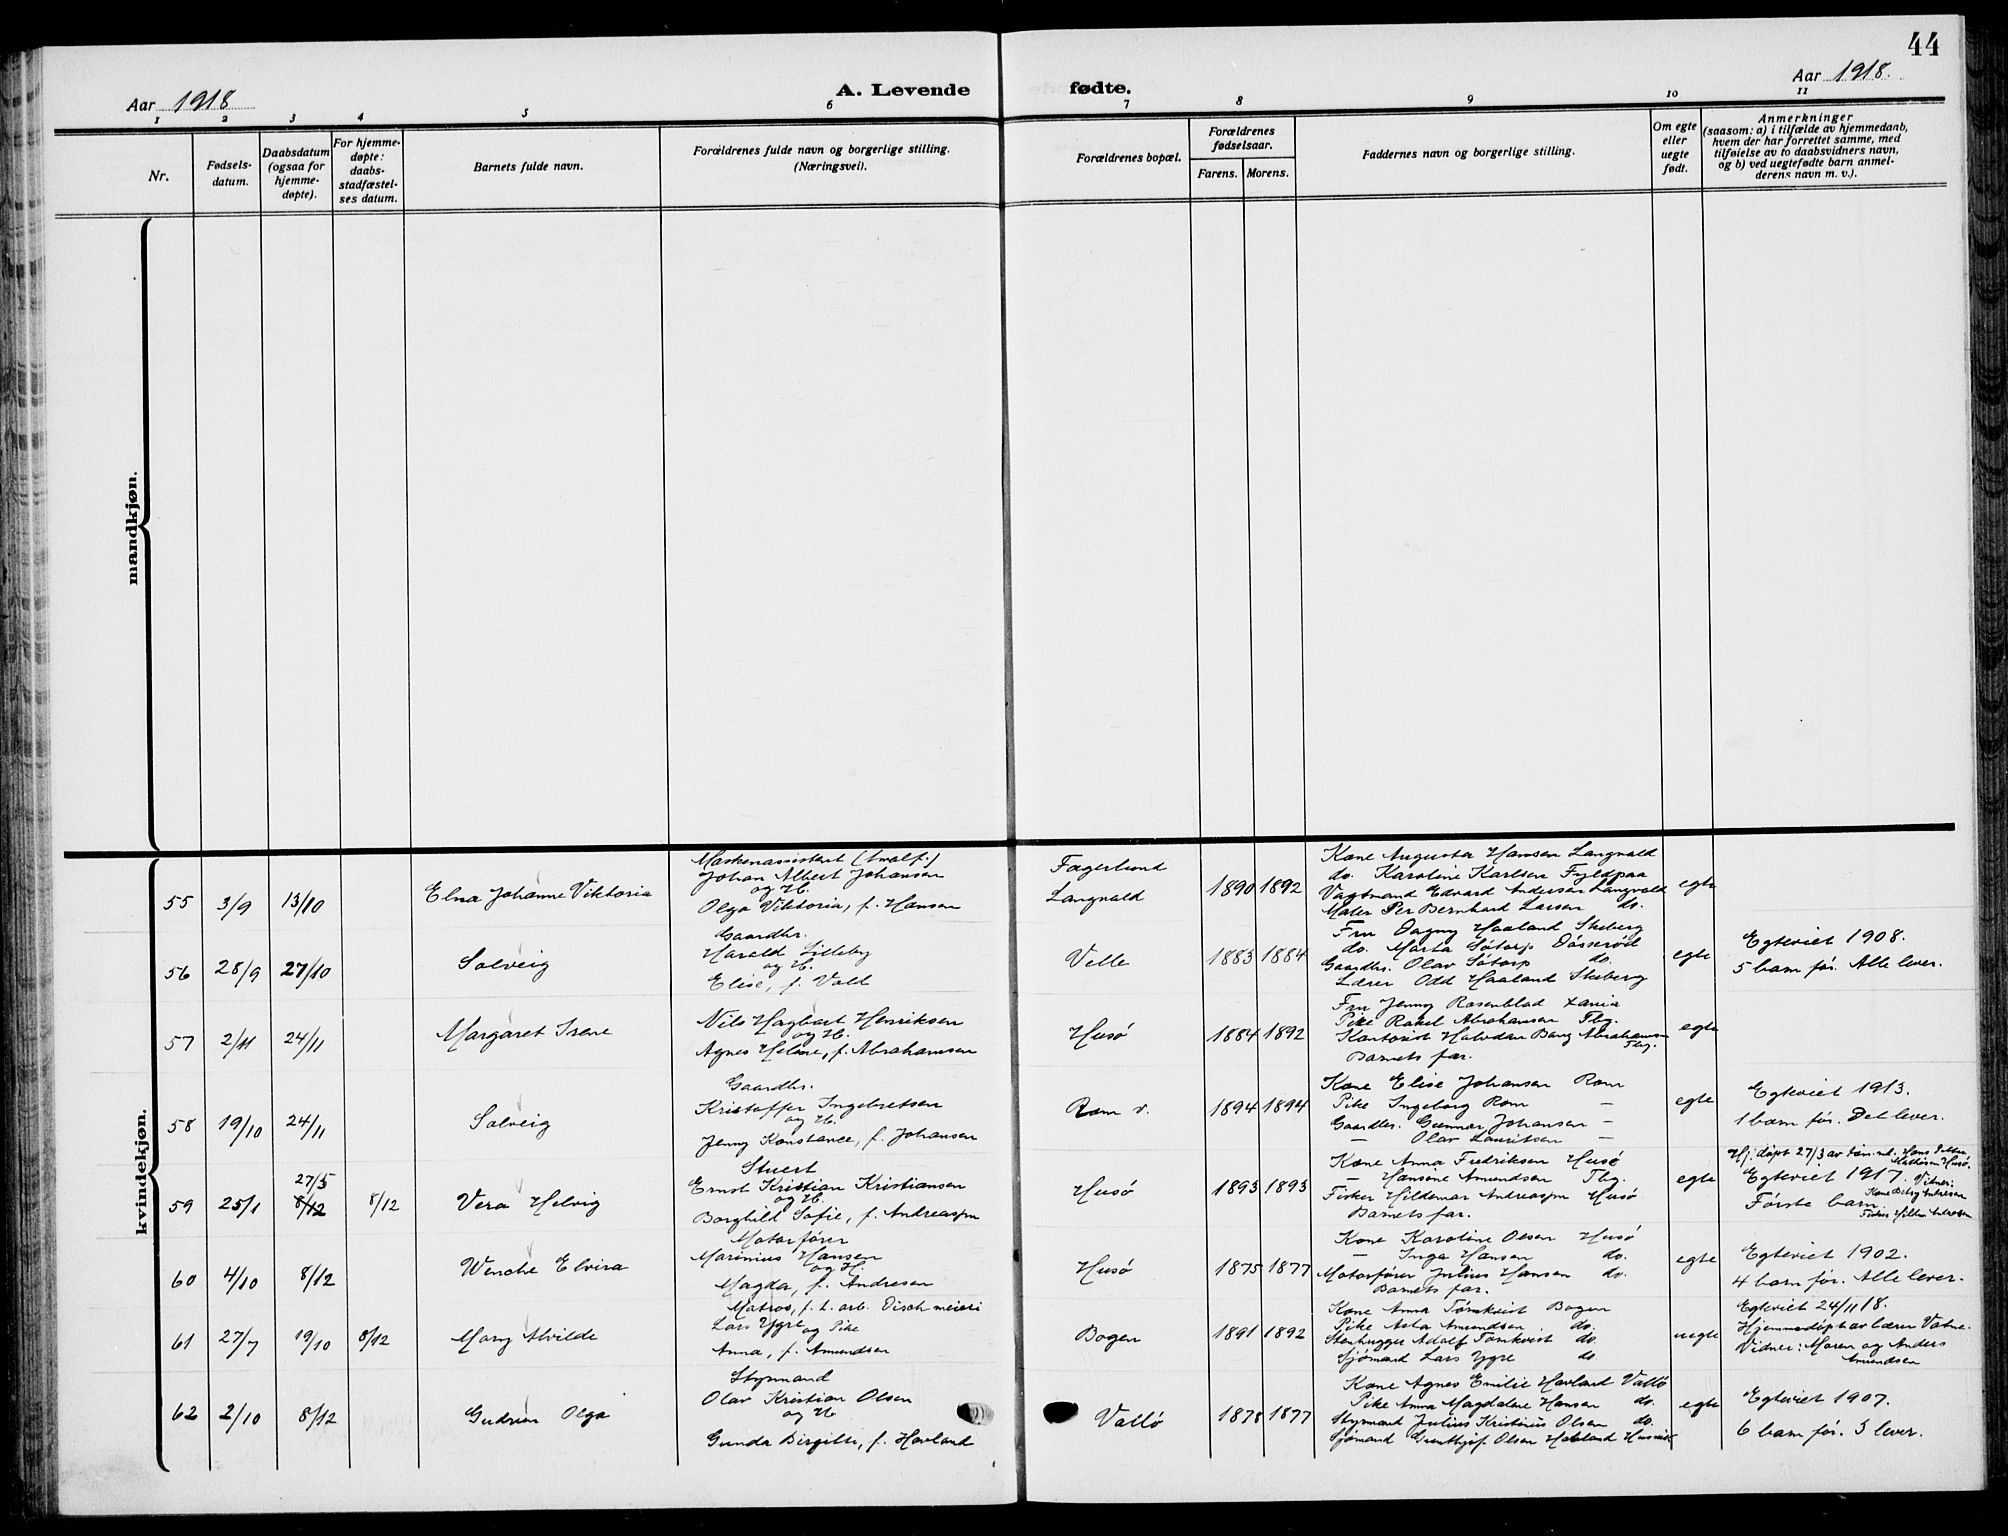 44
Aar 1918
A. Levende fødte.
Aar 1918.
1 2 3 4 5 6 7 8 9 10 11
Nr.
Fødsels-
datum.
Daabsdatum
(ogsaa for
hjemme-
døpte).
For hjemme-
døpte:
daabs-
stadfæstel-
ses datum.
Barnets fulde navn.
Forældrenes fulde navn og borgerlige stilling.
(Næringsvei).
Forældrenes bopæl.
Forældrenes
fødselsaar.
Farens. Morens.
Faddernes navn og borgerlige stilling.
Om egte
eller
uegte
født.
Anmerkninger
(saasom: a) i tilfælde av hjemmedaab,
hvem der har forrettet samme, med
tilføielse av to daabsvidners navn,
og b) ved uegtefødte barn anmel-
derens navn m. v.).
mandkjøn.
kvindekjøn.
55 3/9 13/10 Elna Johanne Viktoria
Maskenassistent
Johan Albert Johansen
og H.
Olga Viktoria, f. Hansen
Fagerlund
Langvald
1890 1892
Kone Augusta Hansen Langvald
do. Karoline Karlsen Fyldpaa
Vagtmand Edvard Andersen Langvald
Maler Per Bernhard Larsen do.
egte
56 28/9 27/10 Solveig
Gaardbr.
Harald Lilleby
og H.
Elise, f. Vold
Velle
1883 1884
Fru Dagny Haaland Skeberg
do. Marta Søtorp
Gaardbr. Olav Søtorp do.
Lærer Odd Haaland Skeberg
egte
Egteviet 1908.
5 barn før. Alle lever.
57 2/11 24/11 Margaret Irene
Nils Hagbart Henriksen
og H.
Agnes Helene, f. Abrahamsen
Husø
1884 1892
Fru Jenny Rosenblad
Pike Rakel Abrahamsen Tbg.
Kontorist Halvdan Bang Abrahamsen
Tbg.
Barnets far.
egte
58 19/10 24/11 Solveig
Gaardbr.
Kristoffer Ingebretsen
og H.
Jenny Konstance, f. Johansen
Rom v.
1894 1894
Kone Elise Johansen Rom
Pike Ingeborg Rom —
Gaardbr. Gunnar Johansen —
— Olav Lauritsen —
egte
Egteviet 1913.
1 barn før. Det lever.
59 25/1 27/5
8/12 8/12 Vera Helvig
Stuert
Ernst Kristian Kristiansen
og H.
Borghild Sofie, f. Andreassen
Husø
1893 1893
Kone Anna Fredriksen Husø
— Hansine Amundsen Tbg.
Fisker Hildemar Andreassen Husø
Barnets far.
egte
Hj. døpt 27/3 av
Egteviet 1917. Vidner:
Første barn
60 4/10 8/12 Wenche Elvira
Motorfører
Marinius Hansen
og H.
Magda, f. Andresen
Husø
1875 1877
Kone Karoline Olsen Husø
— Inga Hansen do.
Motorfører Julius Hansen do.
Barnets far.
egte
Egteviet 1902.
4 barn før. Alle lever.
61 27/7 19/10 8/12 Mary Alvilde
Matros, f. t. arb.
Lars Ygre
og Pike
Anna, f. Amundsen
Bogen
1891 1892
Kone Anna Törnkvist Bogen
Pike Asta Amundsen do.
Stenhugger Adolf Törnkvist do.
Sjømand Lars Ygre do.
uegte
Egteviet 24/11 18.
Hjemmedøpt av lærer Vatne.
Vidner: Maren og Anders
Amundsen
62 2/10 8/12 Gudrun Olga
Styrmand
Olav Kristian Olsen
og H.
Gunda Birgitte, f. Havland
Vallø
1878 1877
Kone Agnes Emilie Havland Vallø
Pike Anna Magdalene Hansen do.
Styrmand Julius Kristinius Olsen do.
Sjømand Olsen
egte
Egteviet 1907.
6 barn før. 3 lever.